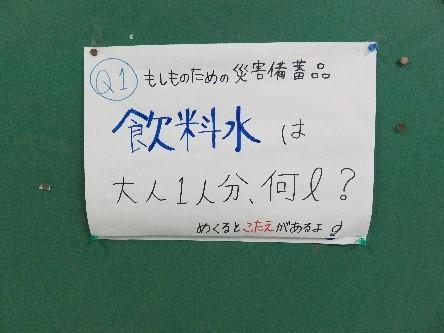 Q1 もしものための災害備蓄品
飲料水は
大人1人分、何ℓ？
めくるとこたえがあるよ